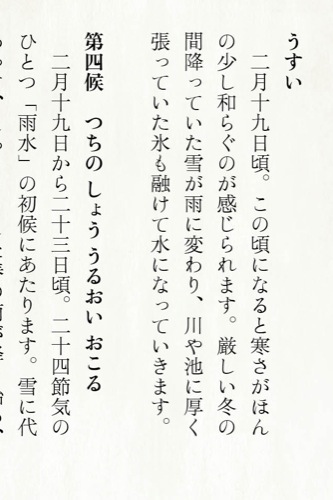 うすい
二月十九日頃。この頃になると寒さがほん
の少し和らぐのが感じられます。厳しい冬の
間降っていた雪が雨に変わり、川や池に厚く
張っていた氷も融けて水になっていきます。
第四候　つちのしょううるおいおこる
二月十九日から二十三日頃。二十四節気の
ひとつ「雨水」の初候にあたります。雪に代